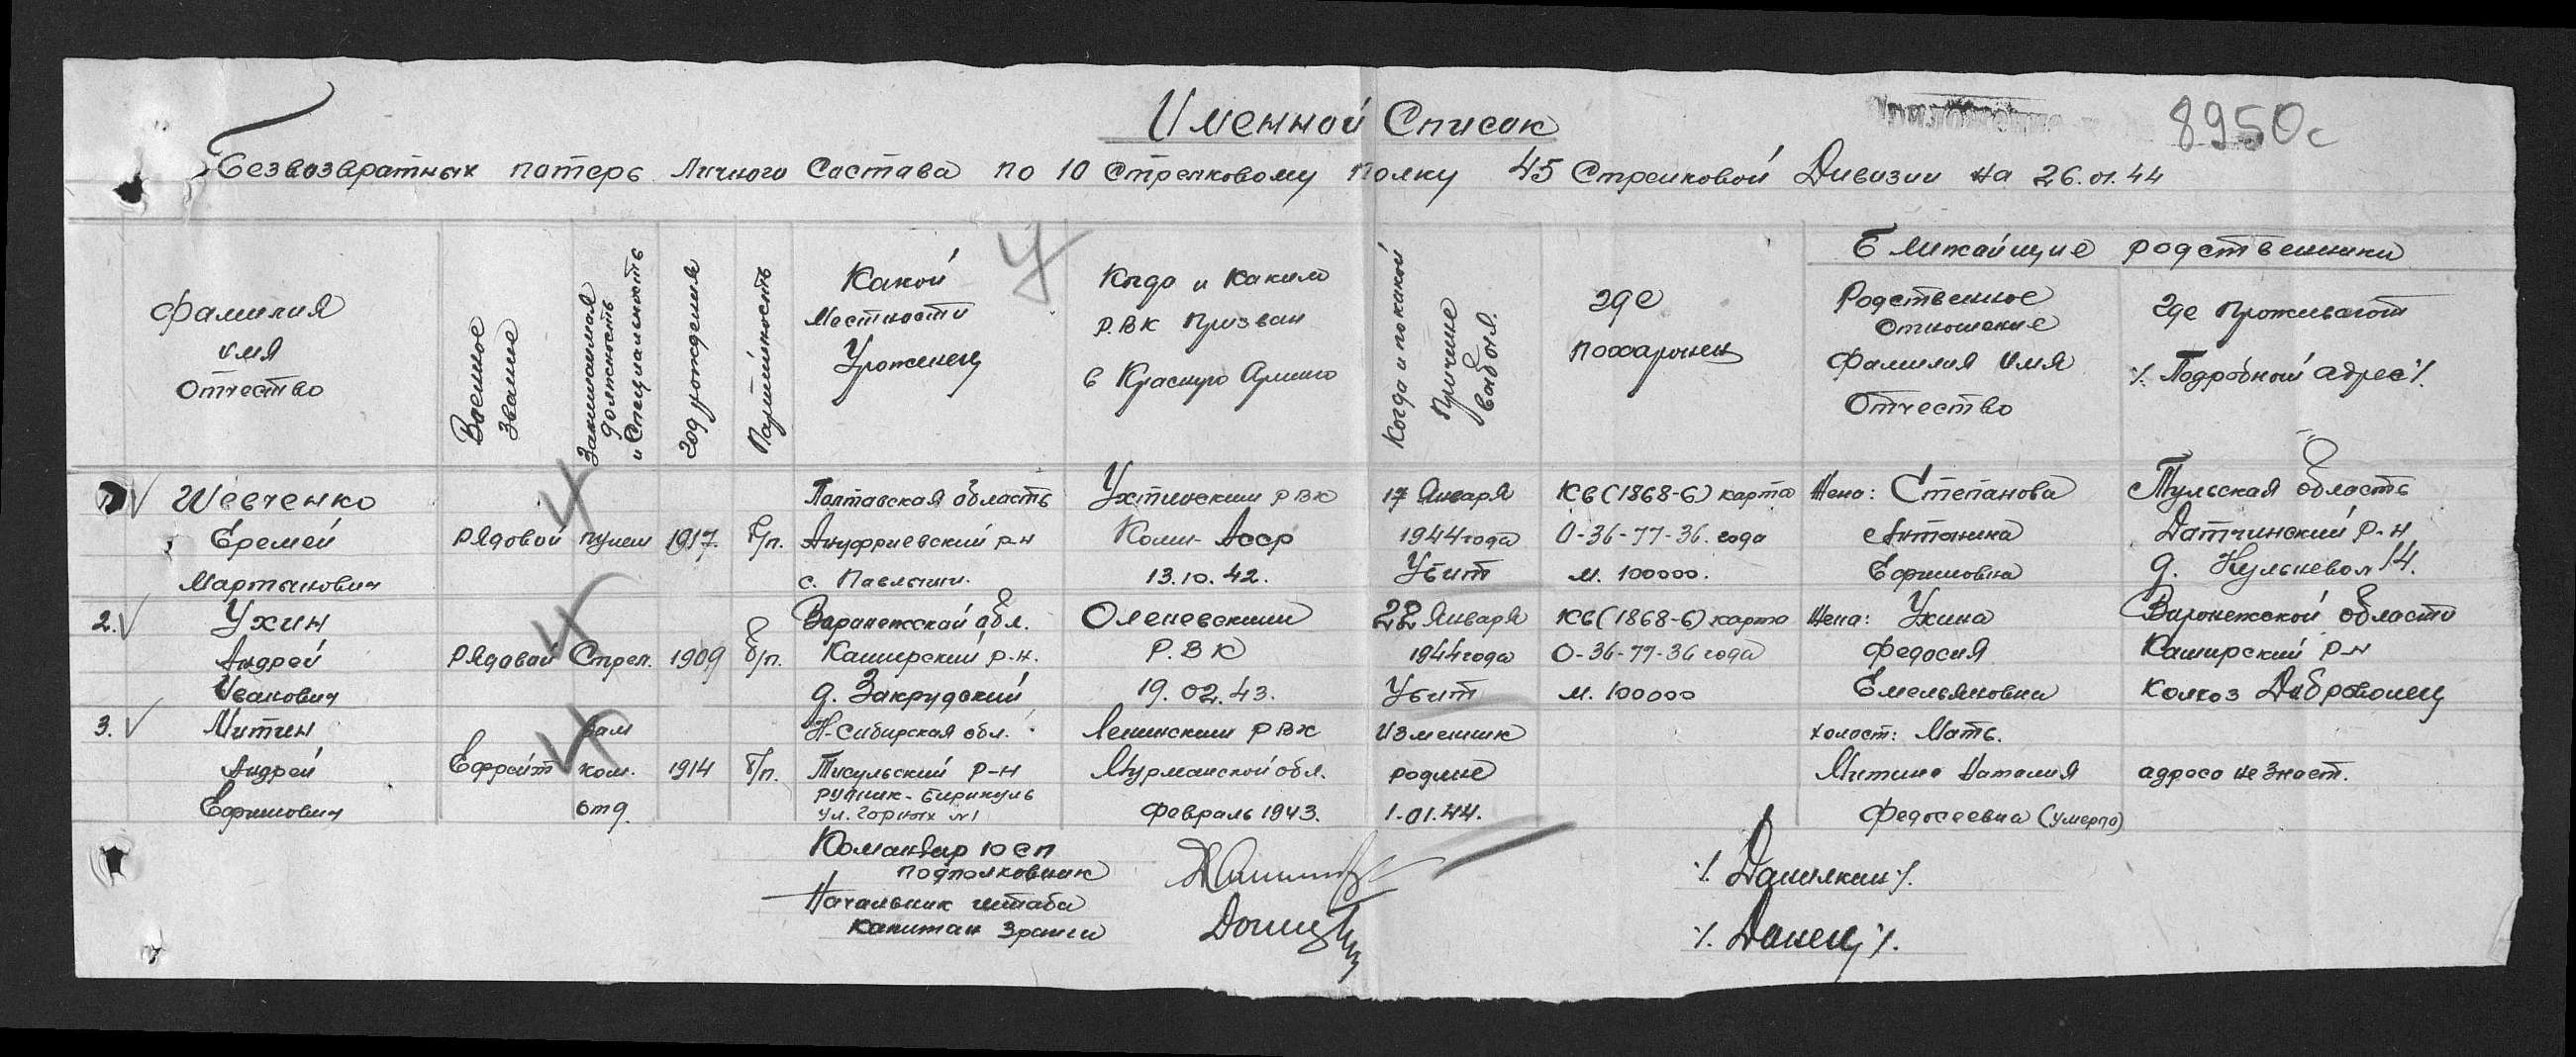 Именной Список
8950с
Безвозвратных потерь Личного Состава по 10 Стрелковому Полку 45 Стрелковой Дивизии на 26.01.44
Фамилия
имя
Отчество
Военное
Звание
Занимаемая
должность
и Специальность
Год рождения
Партийность
Какой
Местности
Уроженец
Когда и Каким
Р.ВК Призван
в Красную Армию
Когда и по какой
Причине
выбыл.
где
похоронен
Ближайшие родственники
Родственное
Отношение
Фамилия имя
Отчество
где Проживают
٪ Подробный адрес ٪
1) Шевченко
Еремей
Мартынович
Рядовой
пулем
1917.
Б/п.
Полтавская область
Ануфриевский р-н
с. Павлыши.
Ухтинским РВК
Коми-Асср
13.10.42.
17 Января
1944 года
Убит
Кв(1868-6) карта
О-36-77-36 года
м. 100000.
Жена: Степанова
Антонина
Ефимовна
Тульская область
Р-н
д.
2. Ухин
Андрей
Иванович
Рядовой
Стрел.
1909
б/п.
Воронежской обл.
Каширский р-н.
д. Закрудский
Оленевским
Р.В К
19.02.43.
22 Января
1944 года
Убит
Кв(1868-6) карта
О-36-77-36 года
м. 100000
Жена: Ухина
Федосия
Емельяновна
Воронежской области
Каширский Р-н
Колхоз Доброволец
3. Митин
Андрей
Ефимович
Ефрейт
Зам
ком.
отд.
1914
б/п.
Н-Сибирская обл.
Тисульский Р-н
рудник-Бирикуль
ул. Горных №1
Ленинским РВК
Мурманской обл.
Февраль 1943.
изменник
родине
1.01.44.
холост: Мать.
Митина Наталия
Федосеевна (умерла)
адреса не знает.
Командир 10 СП
подполковник
٪ Данилкин ٪.
Начальник штаба
Капитан
٪. Донец ٪.